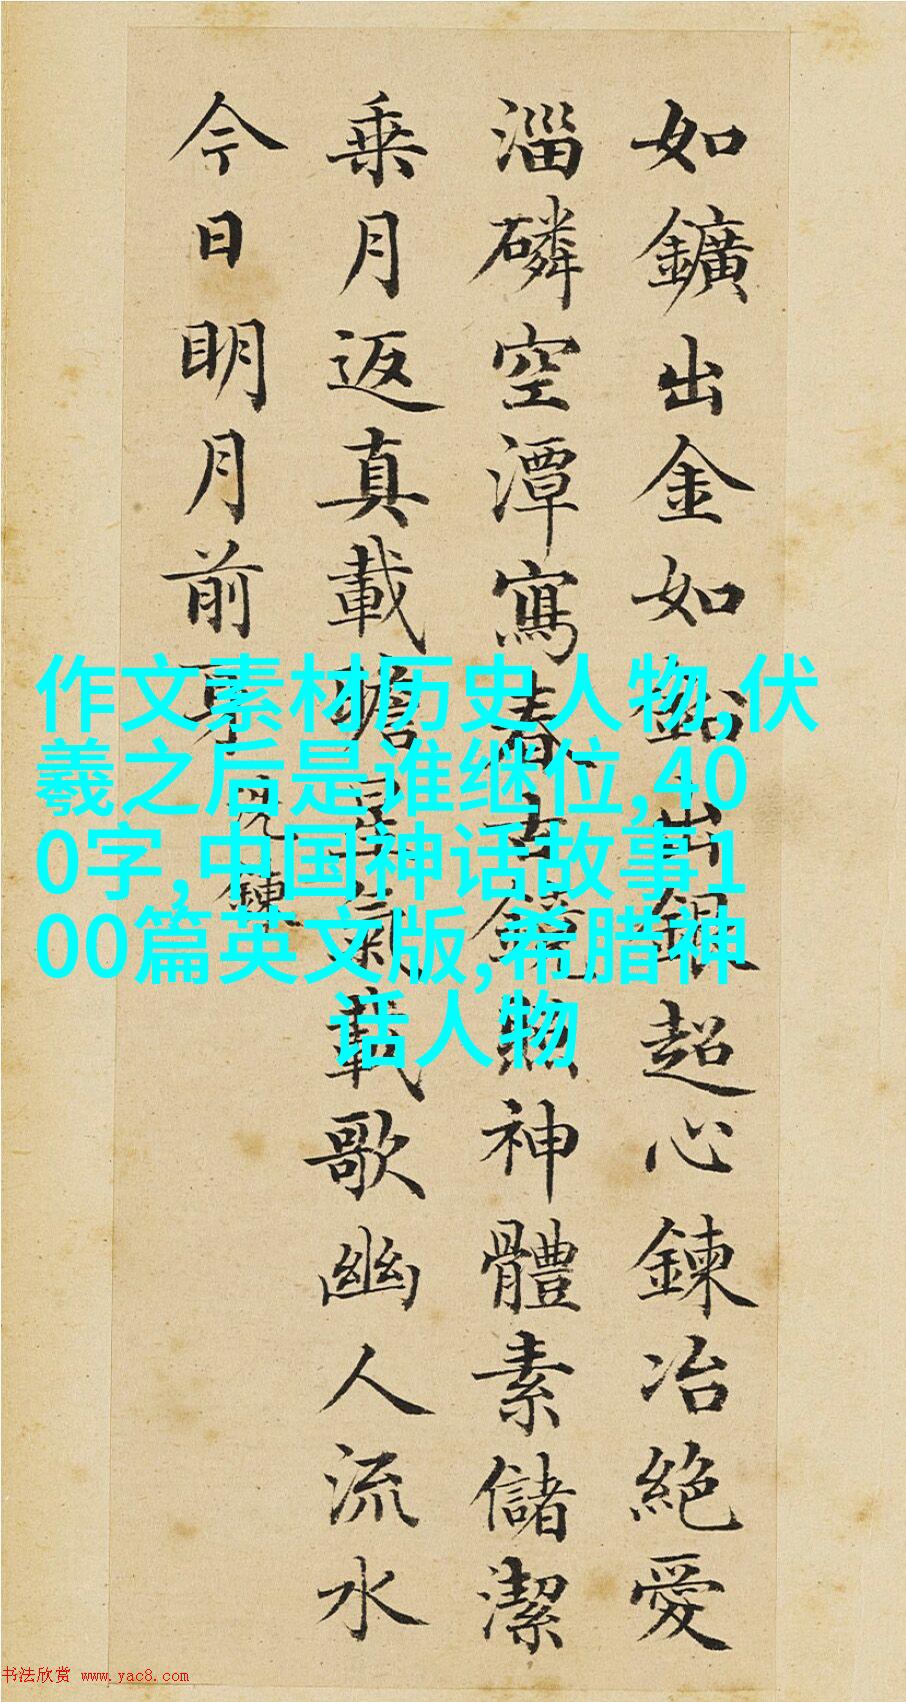 如鑛出金如鉛出銀超心鍊冶絕愛
淄磷空潭寫春古鏡照神體素儲潔
乗月返真載瞻星氣載歌幽人流水
今日明月前身
洗鍊
作文素材历史人物,伏
羲之后是谁继位,40
0字,中国神话故事1
00篇英文版,希腊神
话人物
书法欣赏 www.yac8.com